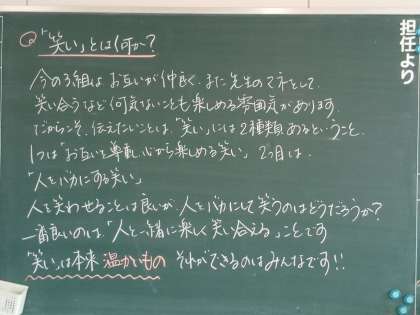 担任より
Q「笑い」とは何か?
今の3組は お互いが仲良く、また先生のマネをして、
笑い合うなど何気ないことも楽しめる雰囲気があります。
だからこそ、伝えたいことは、「笑い」には2種類あるということ。
1つは「お互いを尊重し心から楽しめる笑い」 2つ目は、
「人をバカにする笑い」
人を笑わせることは良いが、人をバカにして笑うのはどうだろうか?
一番良いのは「人と一緒に楽しく笑い合える」ことです
「笑い」は本来 温かいもの それができるのはみんなです!!